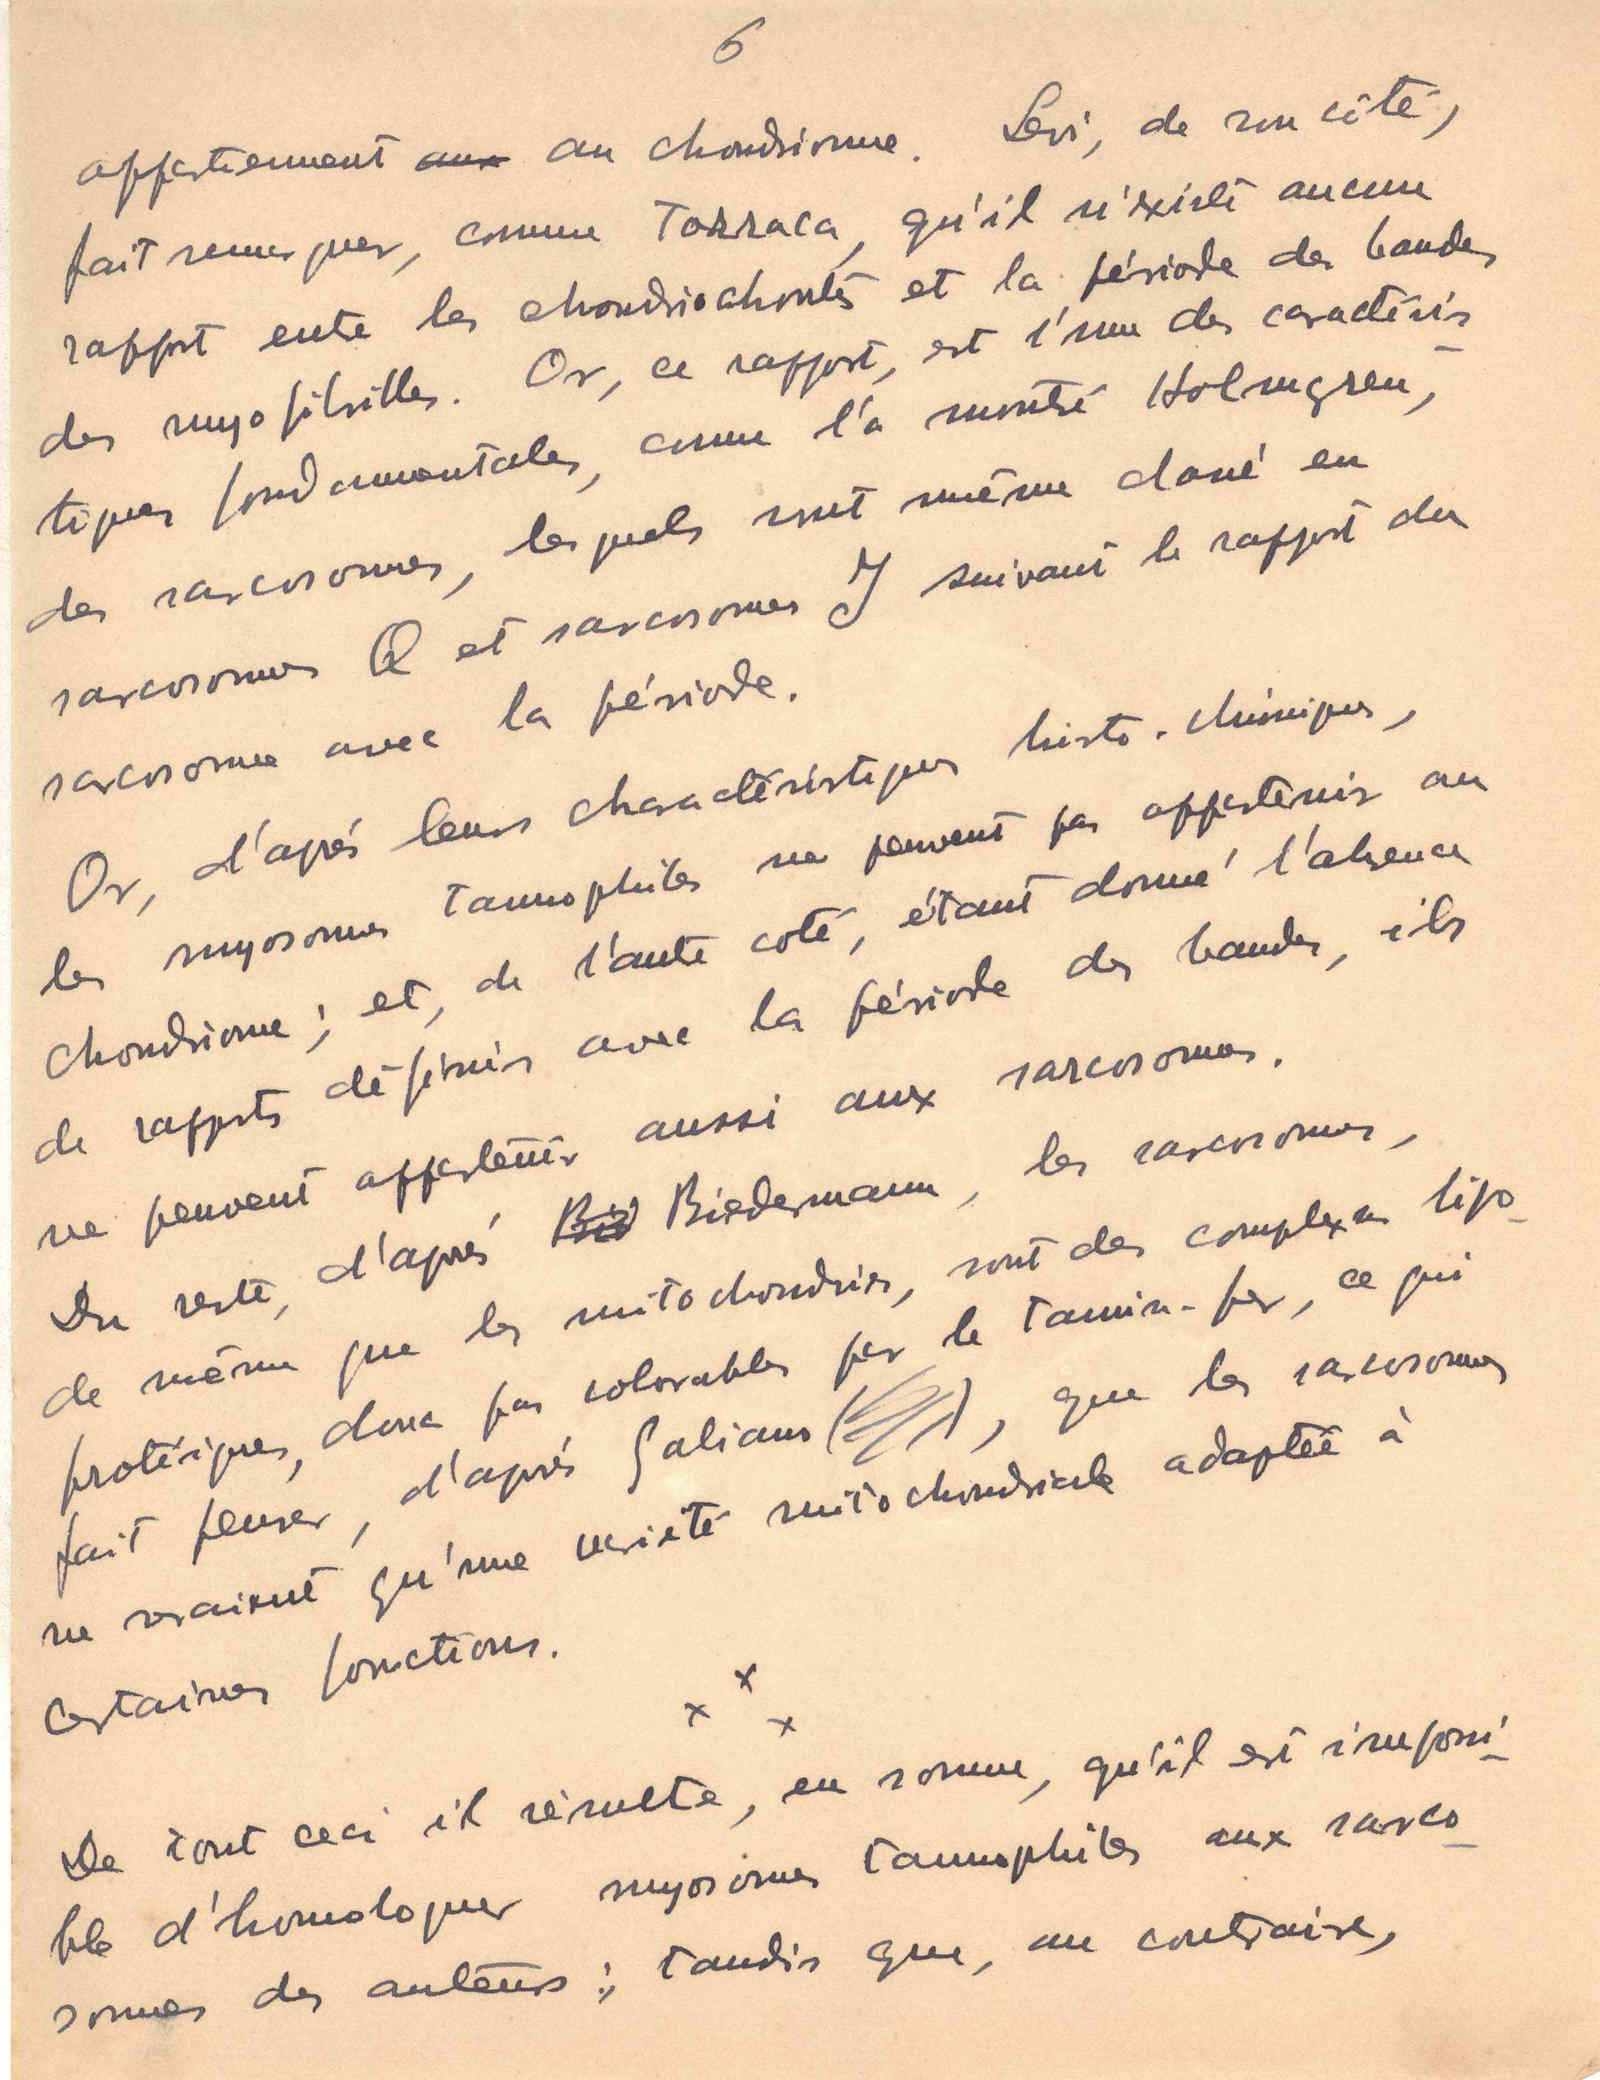 6
appartiennent aux au chondriome. Levi, de son côté,
fait remarquer, comme Torraca, qu'il n'existe aucun
rapport entre les chondriochontes et la période des bandes
des myofibrilles. Or, ce rapport, est l'une des caractéris-
tiques fondamentales, comme l'a montré Holmgren,
des sarcosomes, lesquels sont même classé en
sarcosomes Q et sarcosomes J suivant le rapport du
sarcosome avec la période.
Or, d'après leurs charactéristiques histo-chimiques,
les myosomes tannophiles ne peuvent pas appartenir au
chondriome; et, de l'autre coté, étant donné l'absence
de rapports définis avec la période des bandes, ils
ne peuvent appartenir aussi aux sarcosomes.
Du reste, d'après Biedermann, les sarcosomes,
de même que les mitochondries, sont des complexes lipo-
protéiques, donc pas colorables par le tannin-fer, ce qui
fait penser, d'après Galiano ( ), que les sarcosomes
ne seraient qu'une varieté mitochondriale adaptée à
certaines fonctions.
x x x
De tout ceci il résulte, en somme, qu'il est impossi-
ble d'homologuer myosomes tannophiles aux sarco-
somes des auteurs; tandis que, au contraire,